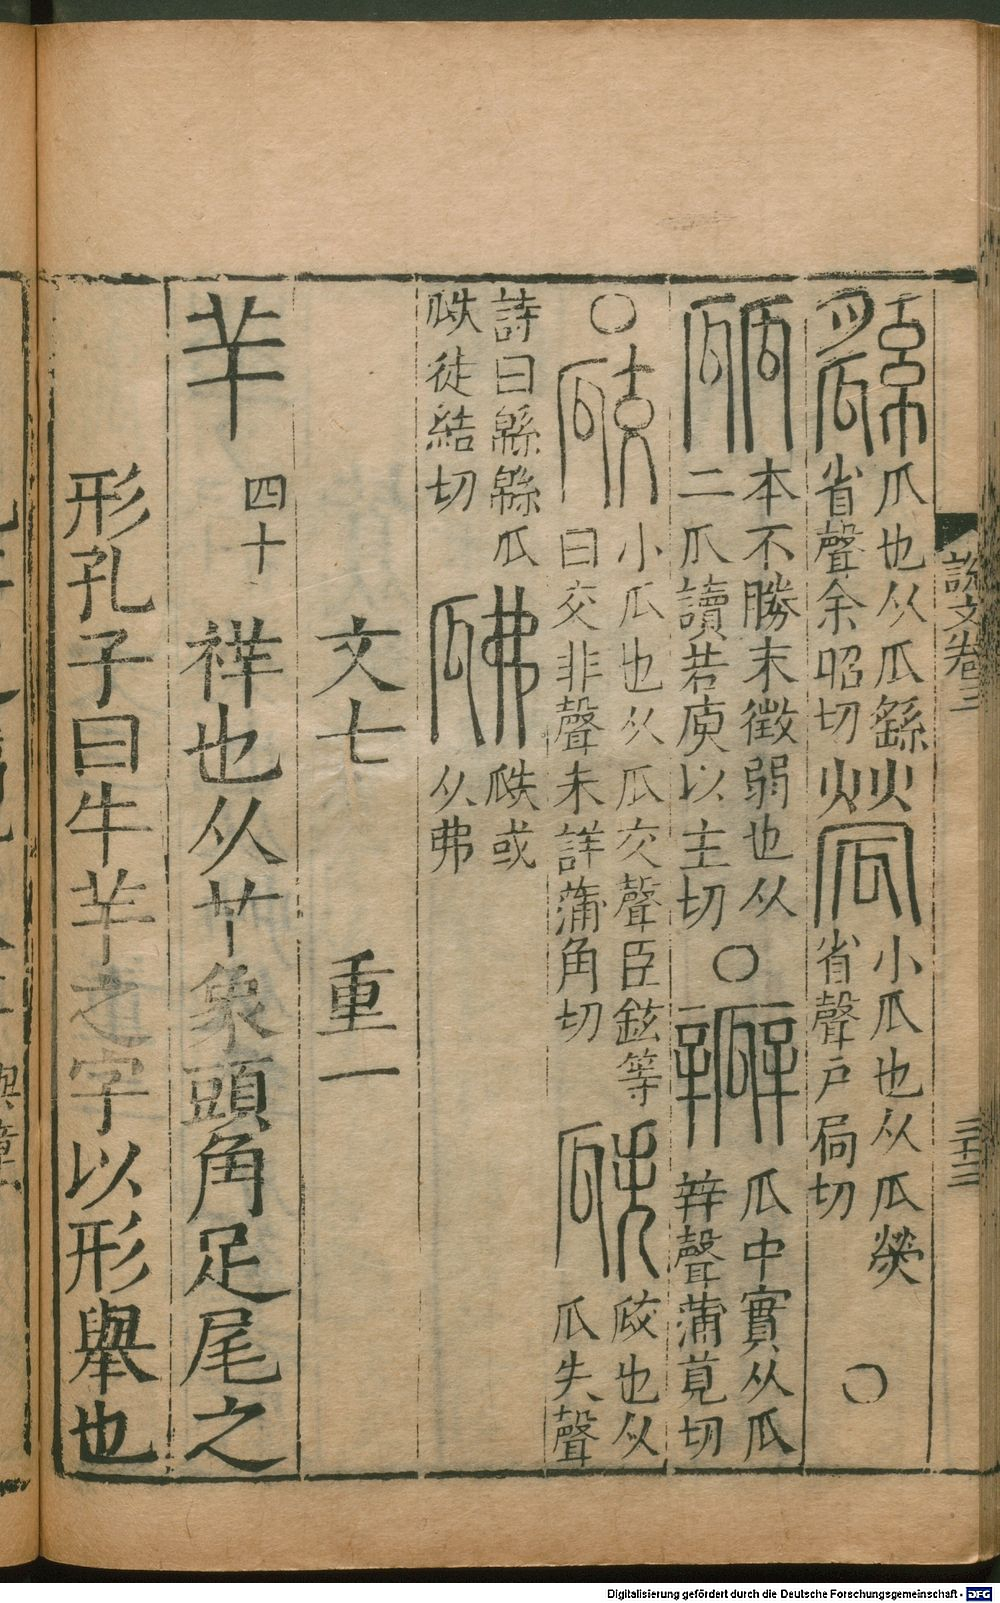 說文卷三
三十三
瓜也从瓜繇
省聲余昭切
小瓜也从瓜熒
省聲戶扃切
○
本不勝末微弱也从
二瓜讀若庾以主切
○
瓜中實从瓜
辡聲蒲莧切
○
小瓜也从瓜交聲臣鉉等
曰交非聲未詳蒲角切
㼎也从
瓜失聲
詩曰緜緜瓜
瓞徒結切
瓞或
从弗
文七 重一
羊 四十 祥也从𦫳象頭角足尾之
形孔子曰牛羊之字以形舉也
Digitalisierung gefördert durch die Deutsche Forschungsgemeinschaft - DFG